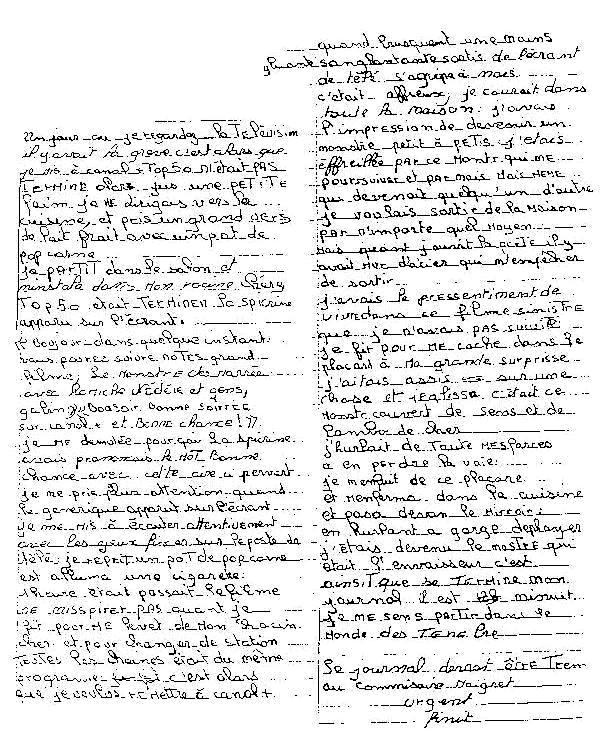 Un jour ou je regardez la TElévision
il y avait la greve c'est alors que
je mis à canal + Top 50 N'était PAS
TERMINE alors jus une PETITE
faim je ME dirigais vers la
cuisine, et pois un grand vers
de lait frait avec un pat de
pop corne
je PARTIT dans le salon et
m'instala dans Mon
Top 50 était TERMINER la spicrine
apparu sur l'écrant.
Bonjoir dans quelque instant.
vous pourez suivre NOTES grand
filme. Le Monstre de
avec et
Bonsoir BONNE SOIREE
sur canal + et BONNE chance! 77
je ME demandée pourquoi La spicrine
avais prononcais le MOT BONNE
chance avec cette aire si pervert
je me prie plus attention quand
le generique apparut sur l'écrant
je me MIS à écouter attentivement
avec les yeux fixer sur le poste de
télé je reprit un poT de pop corne
est alluma une cigarète.
1 heure était passait le filme
NE M'inspiret PAS quant je
fit pour ME levet de Mon
cher et pour changer de station
TESTES les chaines était du même
programe c'est alors
que je voulus REMETtre à canal +
quand brusquent une mains
gluante sanglantante sortis de l'écrant
de télé s'agripa à mois
c'était affreux, je courait dans
toute la maison. j'avais
l'impression de devenir un
monstre petit à petit j'étais
effreillée par ce Monstre qui ME
poursuivait et par mois MEME
qui devenait quelqu'un d'autre
je voulais sortir de la Maison
par n'importe quel Moyen
Mais quant j'ouvrit la porte il y
avait Mur d'acier qui m'empecher
de sortir
j'avais le pressentiment de
vivre dans ce filme sinistre
que je n'avais PAS
je fit pour ME cache dans le
placart à Ma grande surprisse
j'aitais assis sur une
chose et c'était ce
Monstre couvert de sens et de
lambo de cher
j'hurlait de Toute MES forces
a en perdre la voie.
je m'enfuit de ce placare
et M'enferma dans la cuisine
et pasa devan le Miroir;
en hurlant a gorge deployer
j'étais devenu le mostre qui
était l'envaisseur c'est
ainsi T que se TERMINE Mon
journal il est minuit
je ME sens partir dans le
Monde des TENEBRE
Se journal devrat ÊTRE
au Commisaire Maigret
urgent
finit